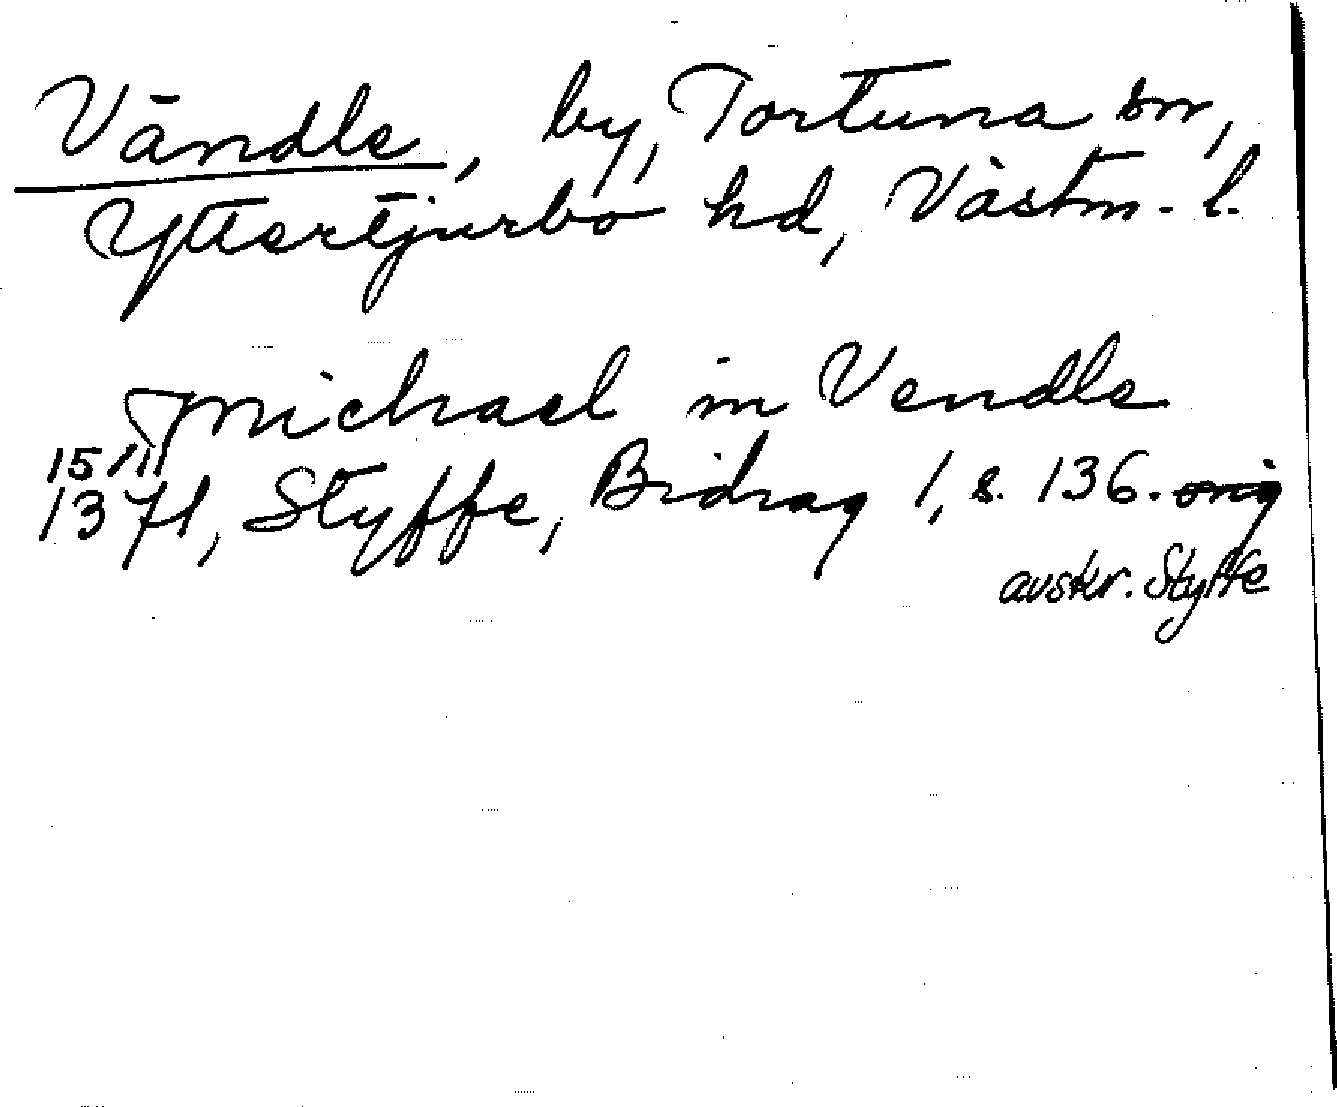 Vändle, by, Tortuna sn,
Yttertjurbo hd, Västm. l.
michael in Vendle
15/11
1371, Styffe, Bidrag 1, s. 136. orig
avskr. Styffe